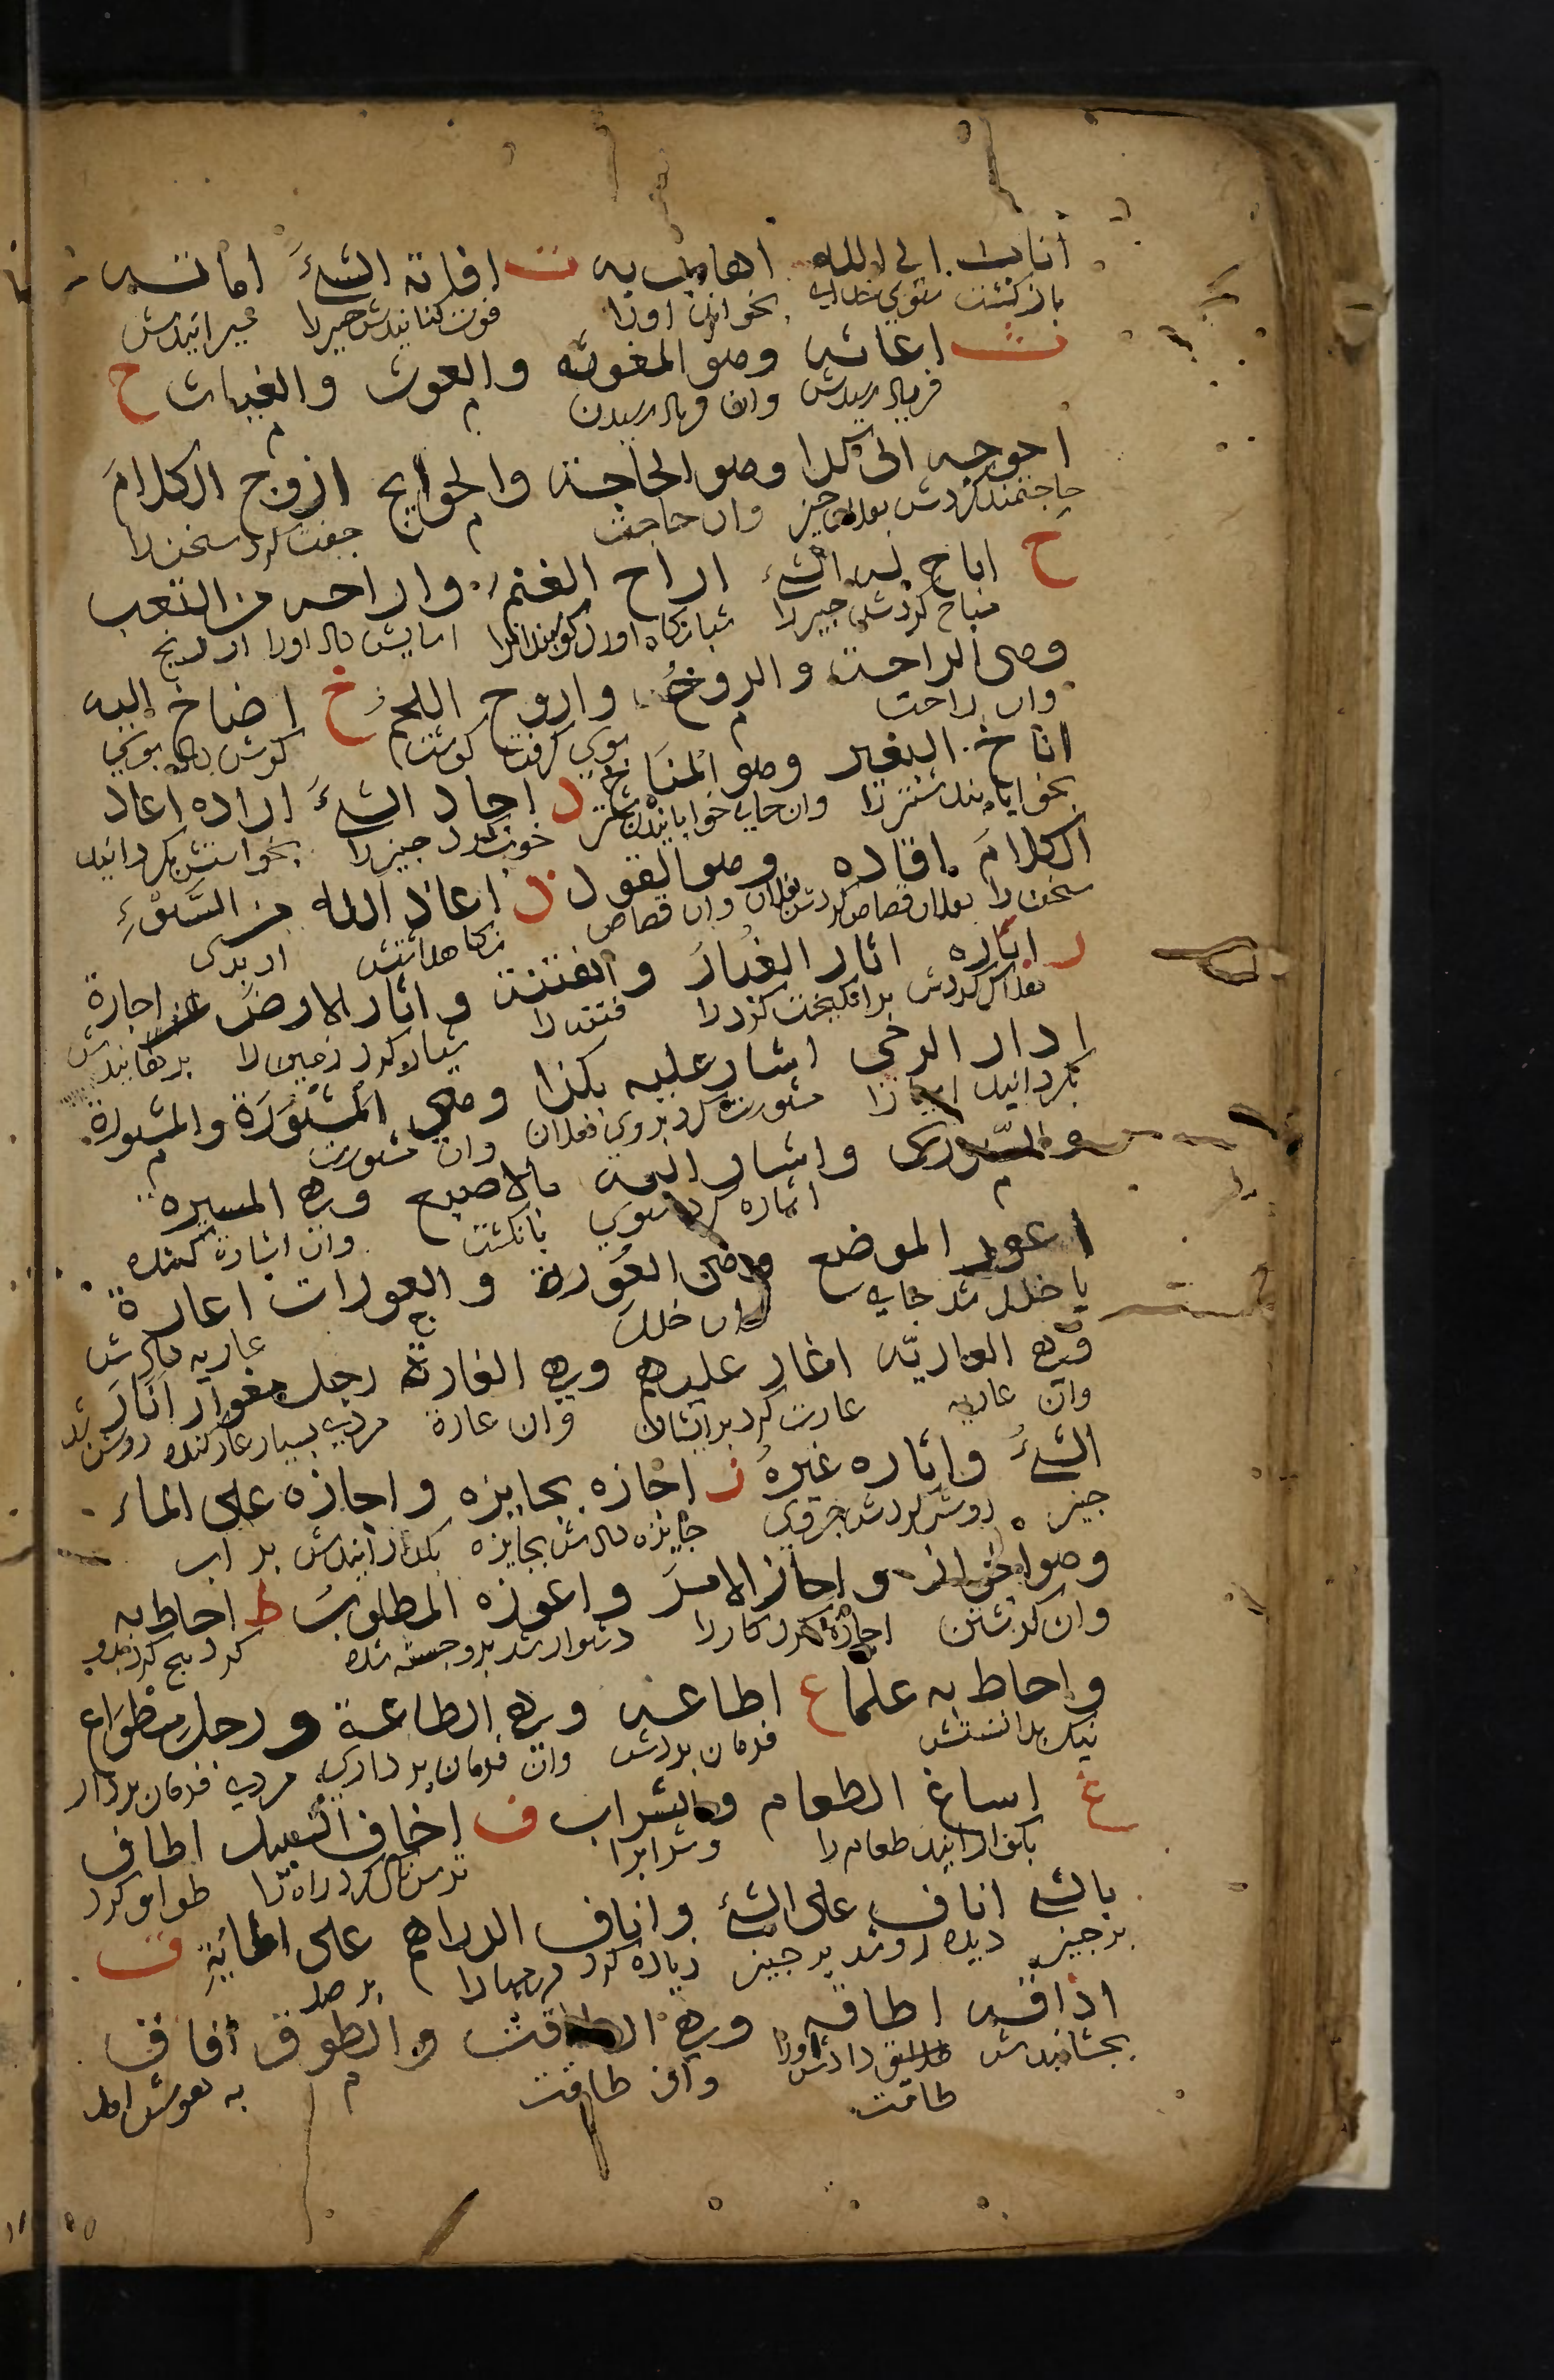 اناب الى الله اهاب به ت افاته الشئَ اماته
باز كشت بسوي خداي بخواند اورا فوت كنانيدش چيز را ميرانيدش
ث اغاثه وهو المغوثه والغوث والغياث ج
فرياد رسيدش وان فرياد رسيدن
احوجه الى كذا وهو الحاجة والحوايج ازوج الكلامَ
حاجتمند كردش چيز وان حاجت جفت كرد سخن را
ح اباح له الشئ اراح الغنم واراحه من التعب
مباح كردش چيز را شبانكاه اورد كوسپندانرا اسايش داد اورا از رنج
وهي الراحة والروحُ واروح اللحم خ اضاخ اليه
وان راحت بوي كرفت كوشت كوش داد بوي
اناخ البعير وهو المناخ د اجاد الشئَ اراده اعاد
بخوابانيد شتر را وان جاي خوابانيدن شتر خوب كرد چيز را بخواستش بكردانيد
الكلامَ اقاده وهو القود ذ اعاذ الله من السَّوْءِ
سخن را قصاص كردش وان قصاص نكاهداشتش از بدى
ر اثاره اثار الغبارَ والفتنة واثار الارضَ اجارة
برانكيخت كرد را فتنه را شيار كرد زمين را برهانيدش
ادار الرحى اشار عليه بكذا وهي المَشْوَرَة والمشورة
بكردانيد اسيا را مشورت كرد بروي وان مشورت
والشورى واشار اليه بالاصبع وهي المسيرة
اشاره كرد بسوي بانكشت وان اشارة كننده
اعور الموضع وهي العَورة والعورات اعارة
با خلل شد جاي وان خلل عاريه دادش
وهي العاريّه اغار عليهم وهي الغارة رجل مغوار انارَ
وان عاريه غارت كرد برايشان وان غارة مردي بسيار غار كننده روشن شد
الشئُ واناره غيرهُ ز اجازه بجايزه واجازه على الماء
چيز روشن كردش جز وي جايزه دادش بجايزه بكذرانيدش بر اب
وهو الجواز واجاز الامرَ واعوزه المطلوبُ ط احاط به
وان كذشتن اجازه كرد كار را دشوار شد برو جسته شده كرد
واحاط به علما ع اطاعه وهي الطاعة ورجل مطواع
نيك بدانستش فرمان بردش وان فرمان برداري مردي فرمان بردار
غ اساغ الطعام والشراب ف اخاف السبيل اطاف
بكوارانيد طعام را وشرابرا ترسناك كرد راه را طواف كرد
بالشئ اناف على الشئ واناف الدراهم على المايةِ ق
بر چيز بر چيز زياده كرد درمها را بر صد
اذاقه اطاقه وهي الطاقة والطوق افاق
بچشانيدش دادش اورا وان طاقت به هوش امد
طاقت